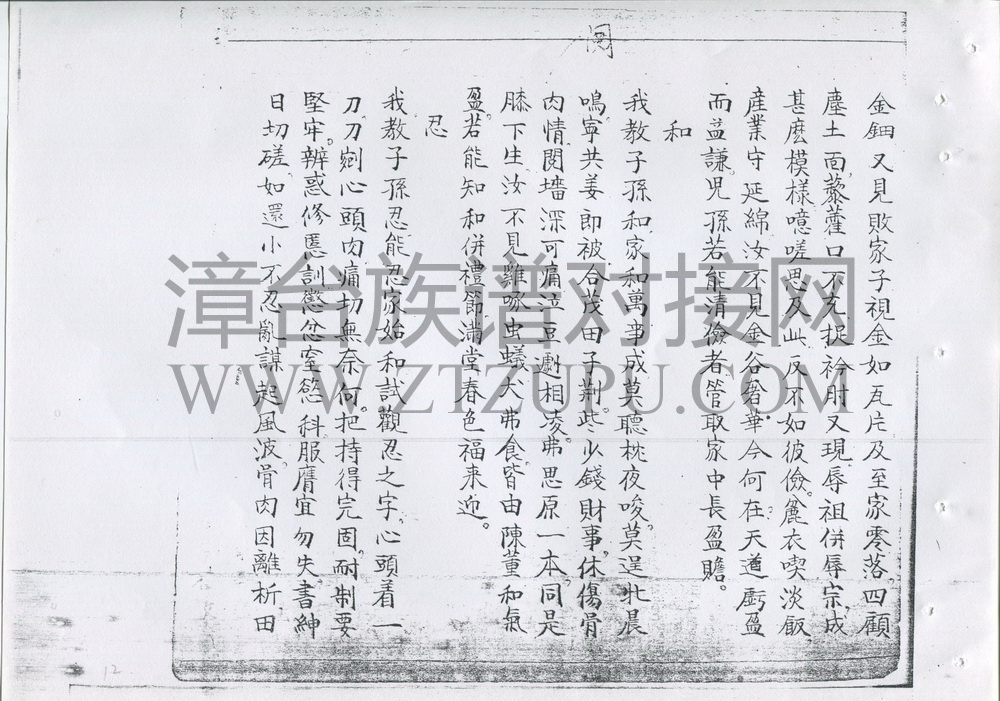 同
金鈿又見敗家子視金如瓦片及至家零落四顧
塵土面藜藿口不充捉衿肘又現辱祖併辱宗成
甚麽模樣噫嗟思及此反不如彼儉麄衣喫淡飯
產業守延綿汝不見金谷奢華今何在天道虧盈
而益謙児孫若能清儉者管取家中長盈贍。
和
我教子孫和家和萬事成莫聽枕夜唆莫逞牝晨
鳴寧共姜即被合茂田子荆些少錢財事休傷骨
肉情鬩墻深可痛泣豆劇相凌弗思原一本同是
膝下生汝不見雞啄虫蟻犬弗食皆由陳董和氣
盈若能知和併禮節滿堂春色福来迎。
忍
我教子孫忍能忍家始和試觀忍之字心頭着一
刀刀剜心頭肉痛切無奈何把持得完固耐制要
堅牢辨惑修慝訓懲忿窒慾科服膺宜勿失書紳
日切磋如還小不忍亂謀起風波骨肉因離析田
12
漳台族谱对接网
WWW.ZTZUPU.COM